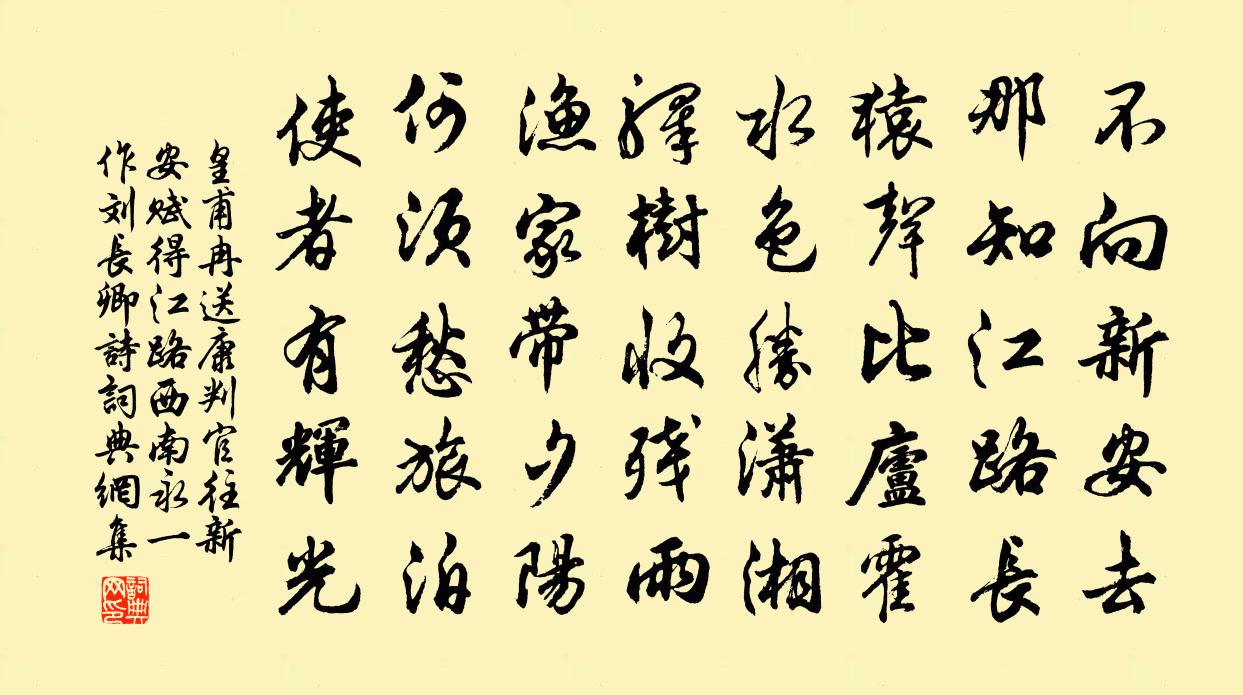 不向新安去
那知江路長
猿聲比廬霍
水色勝潇湘
驛樹收残雨
漁家带夕陽
何須愁旅泊
使者有輝光
皇甫冉送康判官往新
安賦得江路西南永一
作刘長卿詩詞典網集
詞典
网印